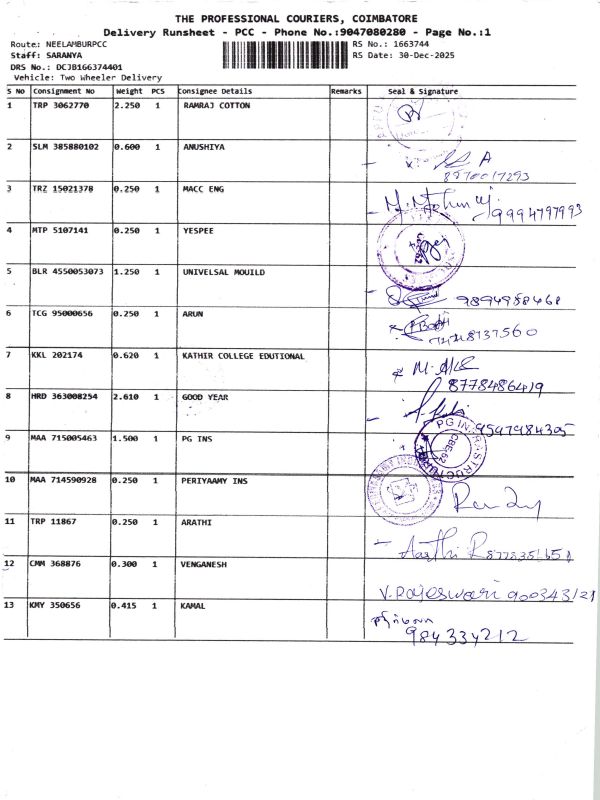 THE PROFESSIONAL COURIERS, COIMBATORE
Delivery Runsheet - PCC - Phone No.:9047080280 - Page No.:1
Route: NEELAMBURPCC RS No.: 1663744
Staff: SARANYA RS Date: 30-Dec-2025
DRS No.: DCJB166374401
Vehicle: Two Wheeler Delivery
S No Consignment No Weight PCS Consignee Details Remarks Seal & Signature
1 TRP 3062770 2.250 1 RAMRAJ COTTON
2 SLM 385880102 0.600 1 ANUSHIYA
3 TRZ 15021378 0.250 1 MACC ENG
9994797993
4 MTP 5107141 0.250 1 YESPEE
5 BLR 4550053073 1.250 1 UNIVELSAL MOUILD
9894988468
6 TCG 95000656 0.250 1 ARUN
7 KKL 202174 0.620 1 KATHIR COLLEGE EDUTIONAL
8778486419
8 HRD 363008254 2.610 1 GOOD YEAR
9547984305
9 MAA 715005463 1.500 1 PG INS
PG INFRASTRUCTURE
CBE-62
10 MAA 714590928 0.250 1 PERIYAAMY INS
11 TRP 11867 0.250 1 ARATHI
Aarthi R
12 CMM 368876 0.300 1 VENGANESH
V. Rajeswari 900343121
13 KMY 350656 0.415 1 KAMAL
984334212